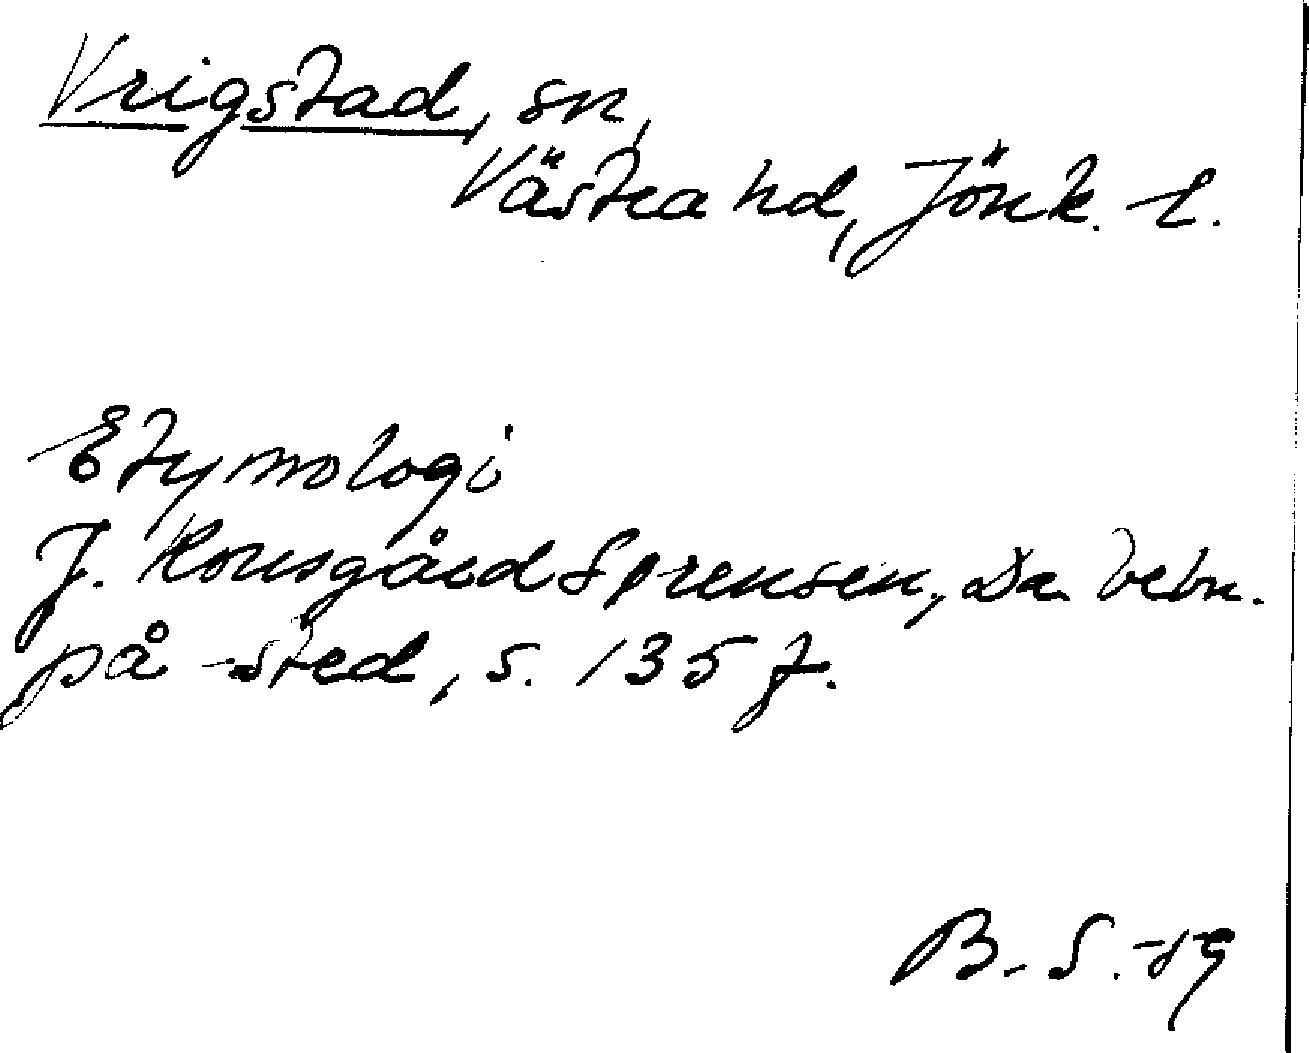 Vrigstad, sn,
Västra hd, Jönk. l.
Etymologi
J. Kousgård Sørensen, Da. bebn.
på -sted, s. 135 f.
B. S. -59